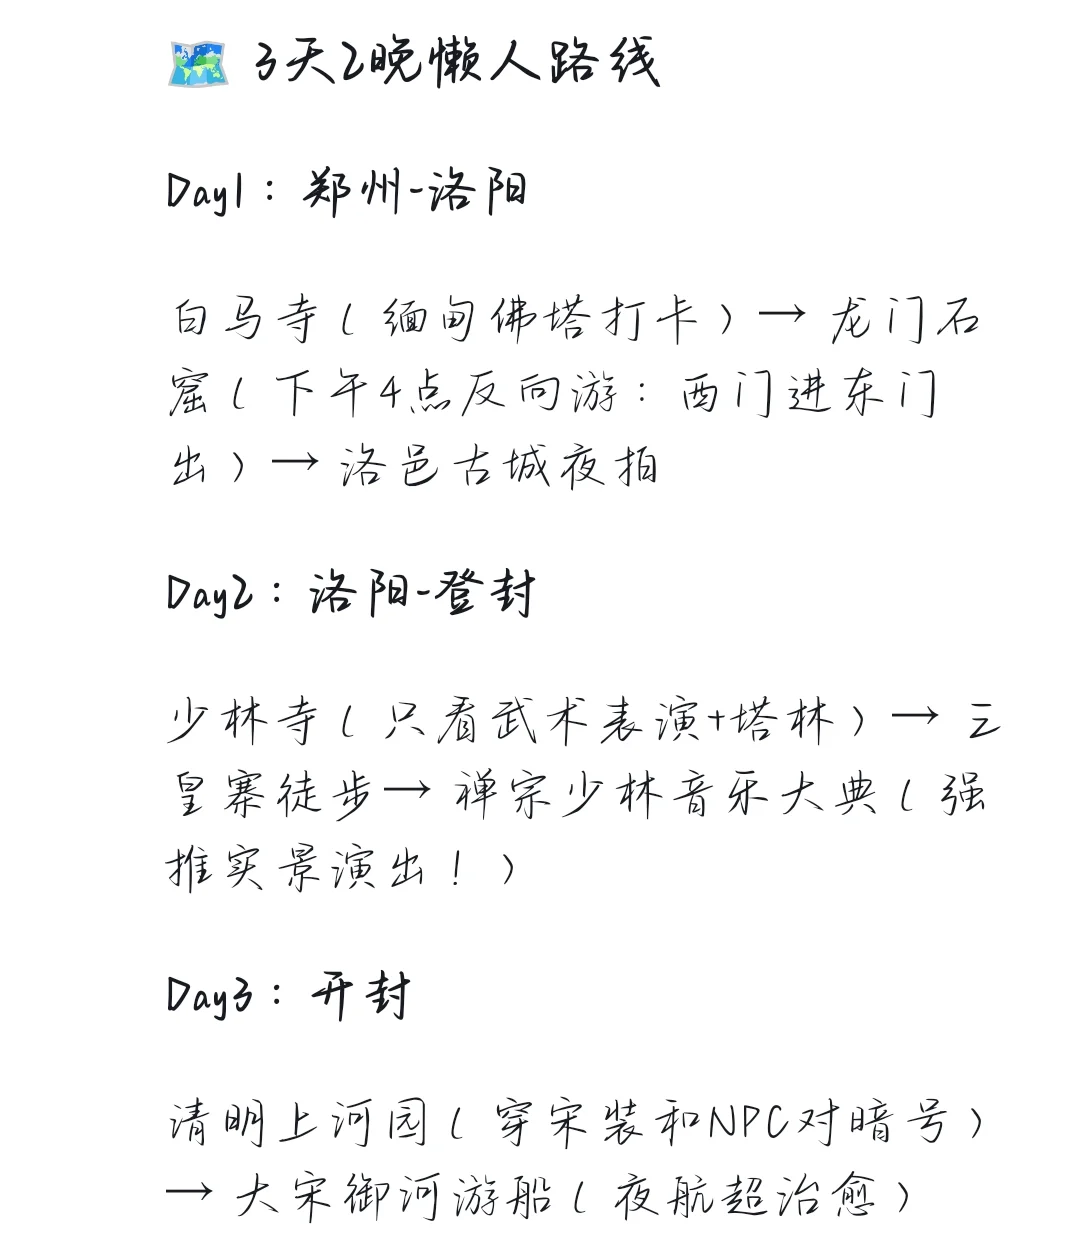 🗺️ 3天2晚懒人路线
Day1：郑州-洛阳
白马寺（缅甸佛塔打卡）→ 龙门石
窟（下午4点反向游：西门进东门
出）→ 洛邑古城夜拍
Day2：洛阳-登封
少林寺（只看武术表演+塔林）→ 三
皇寨徒步→ 禅宗少林音乐大典（强
推实景演出！）
Day3：开封
清明上河园（穿宋装和NPC对暗号）
→ 大宋御河游船（夜航超治愈）